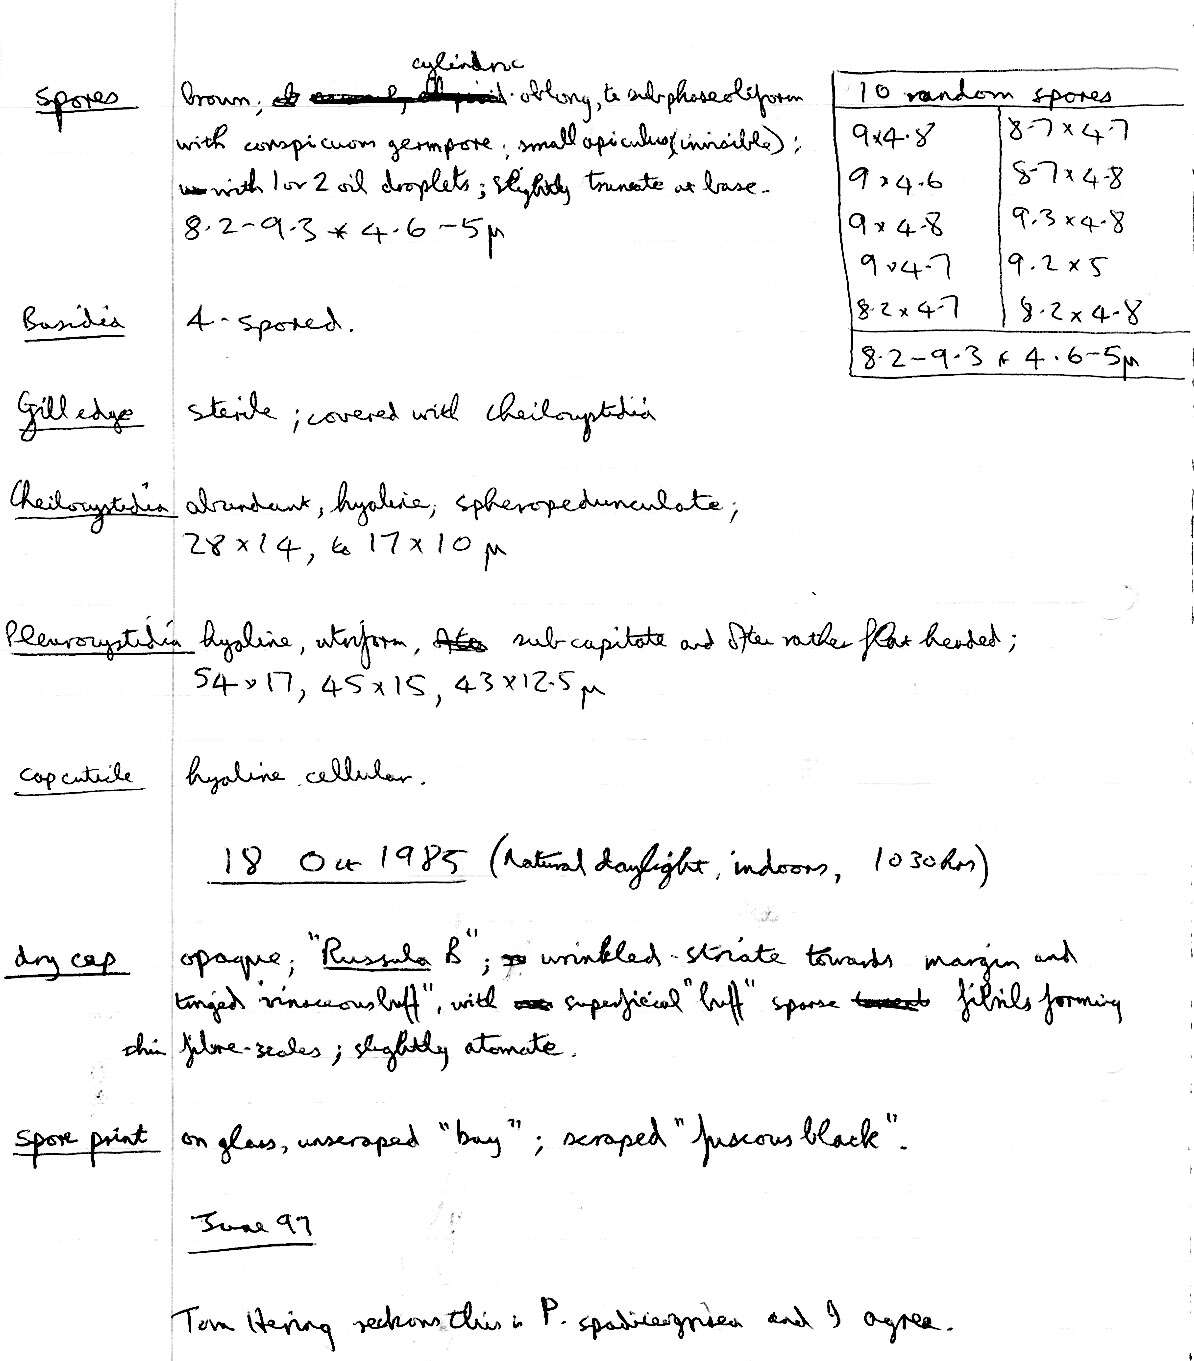 cylindric
spores brown; oblong, to subphaseoliform
with conspicuous germpore; small apiculus (invisible);
with 1 or 2 oil droplets; slightly truncate at base.
8.2-9.3 x 4.6-5µ
10 random spores
9x4.8 8.7x4.7
9x4.6 8.7x4.8
9x4.8 9.3x4.8
9x4.7 9.2x5
8.2x4.7 8.2x4.8
8.2-9.3 x 4.6-5µ
Basidia 4-spored.
Gill edge sterile; covered with cheilocystidia
Cheilocystidia abundant, hyaline; spheropedunculate;
28x14, to 17x10µ
Pleurocystidia hyaline, utriform, sub-capitate and often rather flat headed;
54x17, 45x15, 43x12.5µ
cap cuticle hyaline cellular.
18 Oct 1985 (natural daylight, indoors, 1030hrs)
dry cap opaque; "Russula B"; wrinkled-striate towards margin and
tinged "vinaceous buff", with superficial "buff" sparse fibrils forming
thin fibre-scales; slightly atomate.
spore print on glass, unscraped "bay"; scraped "fuscous black".
June 97
Tom Hering reckons this is P. spadiceogrisea and I agree.